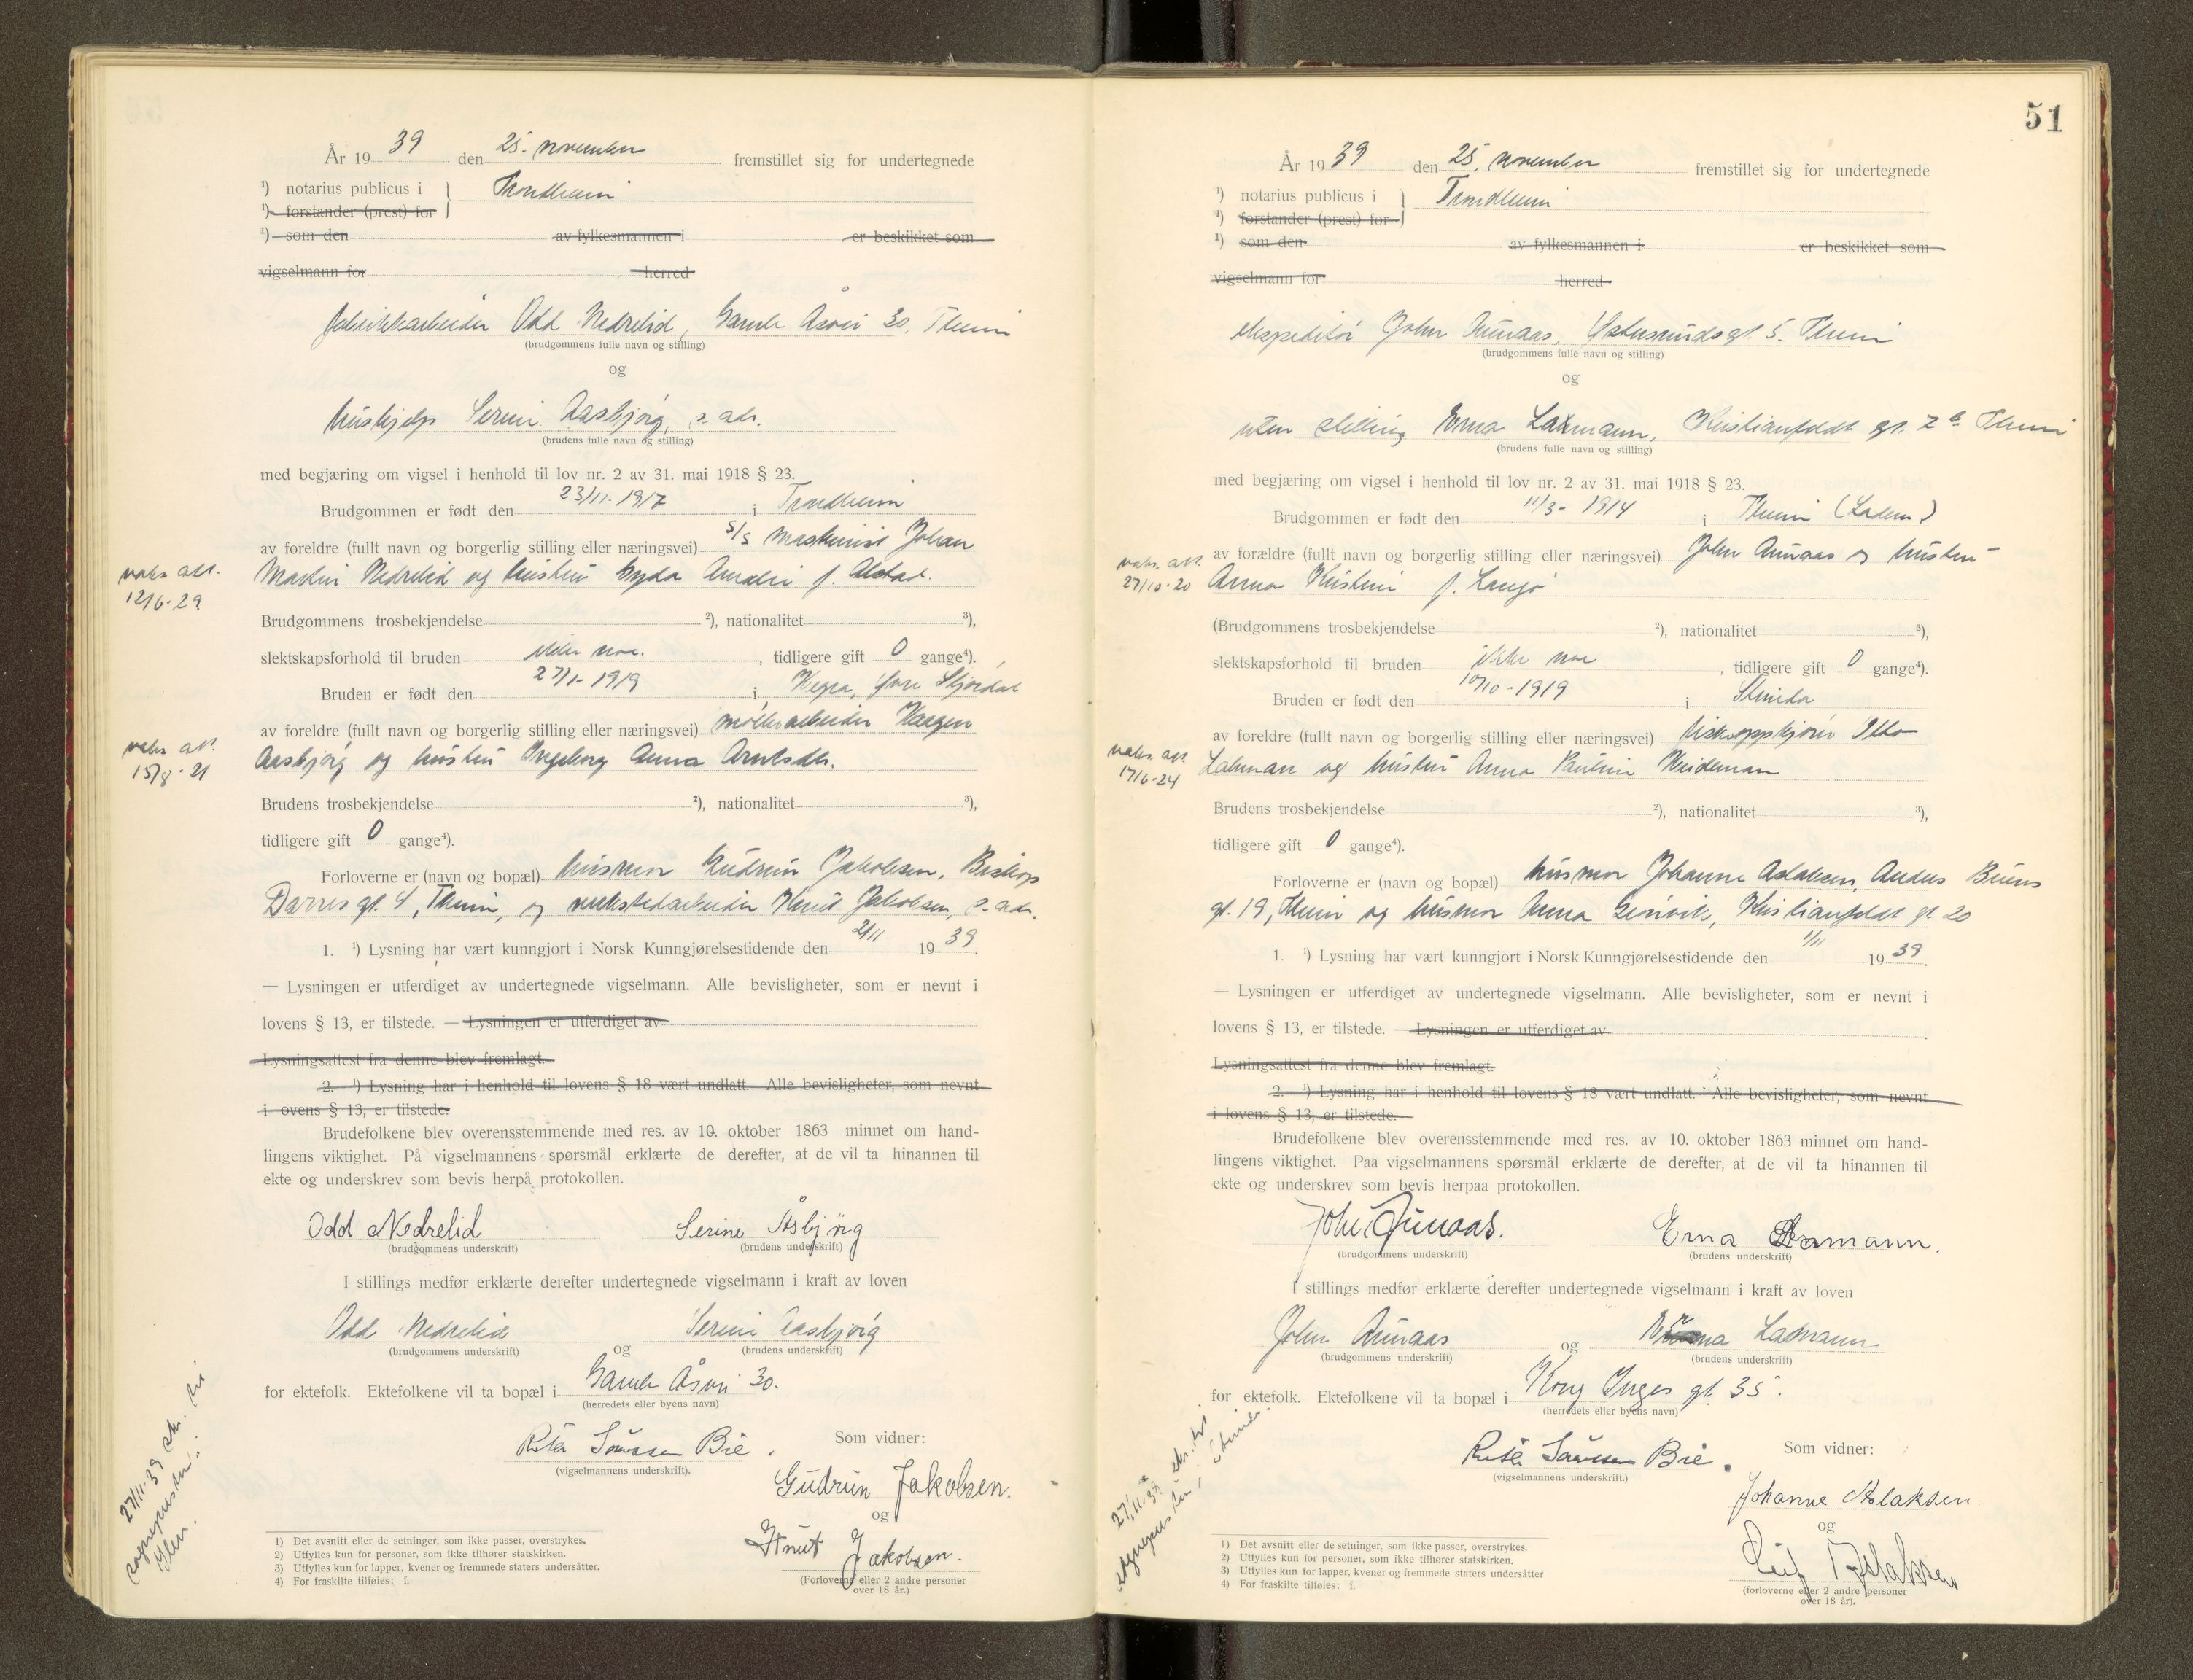 År 19 39 den 25. november fremstillet sig for undertegnede
¹) notarius publicus i } Trondheim
¹) forstander (prest) for
¹) som den av fylkesmannen i er beskikket som
vigselmann for herred
fabrikkarbeider Odd Nedrelid, Gamle Åsvei 30, Th.eim
(brudgommens fulle navn og stilling)
og
hushjelp Serine Aasbjørg, s. adr.
(brudens fulle navn og stilling)
med begjæring om vigsel i henhold til lov nr. 2 av 31. mai 1918 § 23.
Brudgommen er født den 23/11-1917 i Trondheim
av foreldre (fullt navn og borgerlig stilling eller næringsvei) s/s maskinist Johan
vaks. att.
12/6-29
Martin Nedrelid og hustru Gyda Amalie f. Alstad.
Brudgommens trosbekjendelse ²), nationalitet ³),
slektskapsforhold til bruden ikke noe. , tidligere gift 0 gange⁴).
Bruden er født den 27/1-1919 i Hegra, Øvre Stjørdal
av foreldre (fullt navn og borgerlig stilling eller næringsvei) møllearbeider Haagen
vaks. att.
15/8-21
Aasbjørg og hustru Ingeborg Anna Arntsdtr.
Brudens trosbekjendelse ²), nationalitet ³),
tidligere gift 0 gange⁴).
Forloverne er (navn og bopæl) husmor Gudrun Jakobsen, Biskop
Darres gt. 4, Th.eim, og verkstedarbeider Knut Jakobsen, s. adr.
1. ¹) Lysning har vært kunngjort i Norsk Kunngjørelsestidende den 2/11 19 39.
— Lysningen er utferdiget av undertegnede vigselmann. Alle bevisligheter, som er nevnt i
lovens § 13, er tilstede. — Lysningen er utferdiget av
Lysningsattest fra denne blev fremlagt.
2. ¹) Lysning har i henhold til lovens § 18 vært undlatt. Alle bevisligheter, som nevnt
i ovens § 13, er tilstede.
Brudefolkene blev overensstemmende med res. av 10. oktober 1863 minnet om hand-
lingens viktighet. På vigselmannens spørsmål erklærte de derefter, at de vil ta hinannen til
ekte og underskrev som bevis herpå protokollen.
Odd Nedrelid Serine Åsbjørg
(brudgommens underskrift) (brudens underskrift)
I stillings medfør erklærte derefter undertegnede vigselmann i kraft av loven
Odd Nedrelid og Serine Aasbjørg
(brudgommens underskrift) (brudens underskrift)
for ektefolk. Ektefolkene vil ta bopæl i Gamle Åsvei 30.
(herredets eller byens navn)
Bie. Som vidner:
(vigselmannens underskrift).
Gudrun Jakobsen.
og
Knut Jakobsen.
(Forloverne eller 2 andre personer
over 18 år.)
27/11-39 skr. til
sogneprestен i
Ilen.
1) Det avsnitt eller de setninger, som ikke passer, overstrykes.
2) Utfylles kun for personer, som ikke tilhører statskirken.
3) Utfylles kun for lapper, kvener og fremmede staters undersåtter.
4) For fraskilte tilføies: f.
51
År 19 39 den 25. november fremstillet sig for undertegnede
¹) notarius publicus i } Trondheim
¹) forstander (prest) for
¹) som den av fylkesmannen i er beskikket som
vigselmann for herred
ekspeditør John Aunaas, Østersunds gt. 5. Th.eim
(brudgommens fulle navn og stilling)
og
uten stilling Erna Laxmann, Kristianfeldt gt. 7b Th.eim
(brudens fulle navn og stilling)
med begjæring om vigsel i henhold til lov nr. 2 av 31. mai 1918 § 23.
Brudgommen er født den 11/3-1914 i Th.eim (Ladem.)
av forældre (fullt navn og borgerlig stilling eller næringsvei) John Aunaas og hustru
vaks. att.
27/10-20
Anna Kristine f. Langø
(Brudgommens trosbekjendelse ²), nationalitet ³),
slektskapsforhold til bruden ikke noe , tidligere gift 0 gange⁴).
Bruden er født den 10/10-1919 i Strinda
av foreldre (fullt navn og borgerlig stilling eller næringsvei) fiskeoppkjøper Otto
vaks. att.
17/6-24
Laxman og hustru Anna Pauline Weideman
Brudens trosbekjendelse ²), nationalitet ³),
tidligere gift 0 gange⁴).
Forloverne er (navn og bopæl) husmor Johanne Aslaksen, Anders Buens
gt. 19, Th.eim og husmor Anna Kristianfeldt gt. 20
1. ¹) Lysning har vært kunngjort i Norsk Kunngjørelsestidende den 1/11 19 39.
— Lysningen er utferdiget av undertegnede vigselmann. Alle bevisligheter, som er nevnt i
lovens § 13, er tilstede. — Lysningen er utferdiget av .
Lysningsattest fra denne blev fremlagt.
2. ¹) Lysning har i henhold til lovens § 18 vært undlatt. Alle bevisligheter, som nevnt
i lovens § 13, er tilstede.
Brudefolkene blev overensstemmende med res. av 10. oktober 1863 minnet om hand-
lingens viktighet. Paa vigselmannens spørsmål erklærte de derefter, at de vil ta hinannen til
ekte og underskrev som bevis herpaa protokollen.
John Aunaas. Erna Laxmann.
(brudgommens underskrift) (brudens underskrift)
I stillings medfør erklærte derefter undertegnede vigselmann i kraft av loven
John Aunaas og Erna Laxmann
(brudgommens underskrift) (brudens underskrift)
for ektefolk. Ektefolkene vil ta bopæl i Kong Inges gt. 35.
(herredets eller byens navn)
Bie. Som vidner:
(vigselmannens underskrift.)
Johanne Aslaksen.
og
Leif Aslaksen
(forloverne eller 2 andre personer
over 18 år).
27/11-39 skr. til
sognepresten i Strinda.
1) Det avsnitt eller de setninger, som ikke passer, overstrykes.
2) Utfylles kun for personer, som ikke tilhører statskirken.
3) Utfylles kun for lapper, kvener og fremmede staters undersåtter
4) For fraskilte tilføies: f.